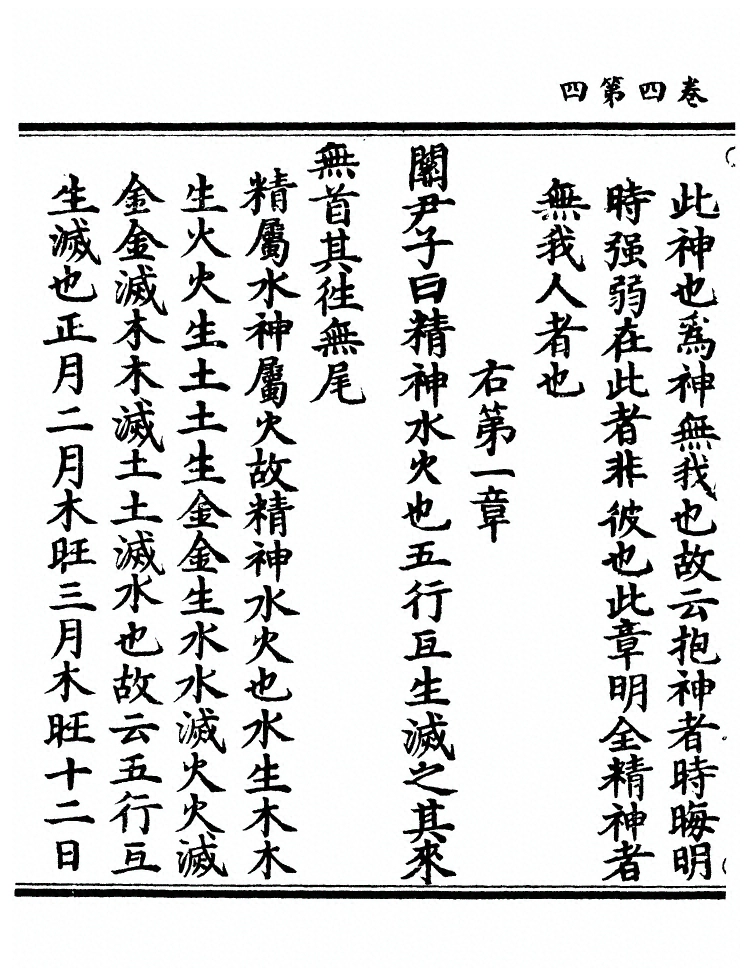 卷四第四
此神也爲神無我也故云抱神者時晦明
時强弱在此者非彼也此章明全精神者
無我人者也
右第一章
關尹子曰精神水火也五行互生滅之其來
無首其徃無尾
精屬水神屬火故精神水火也水生木木
生火火生土土生金金生水水滅火火滅
金金滅木木滅土土滅水也故云五行互
生滅也正月二月木旺三月木旺十二日